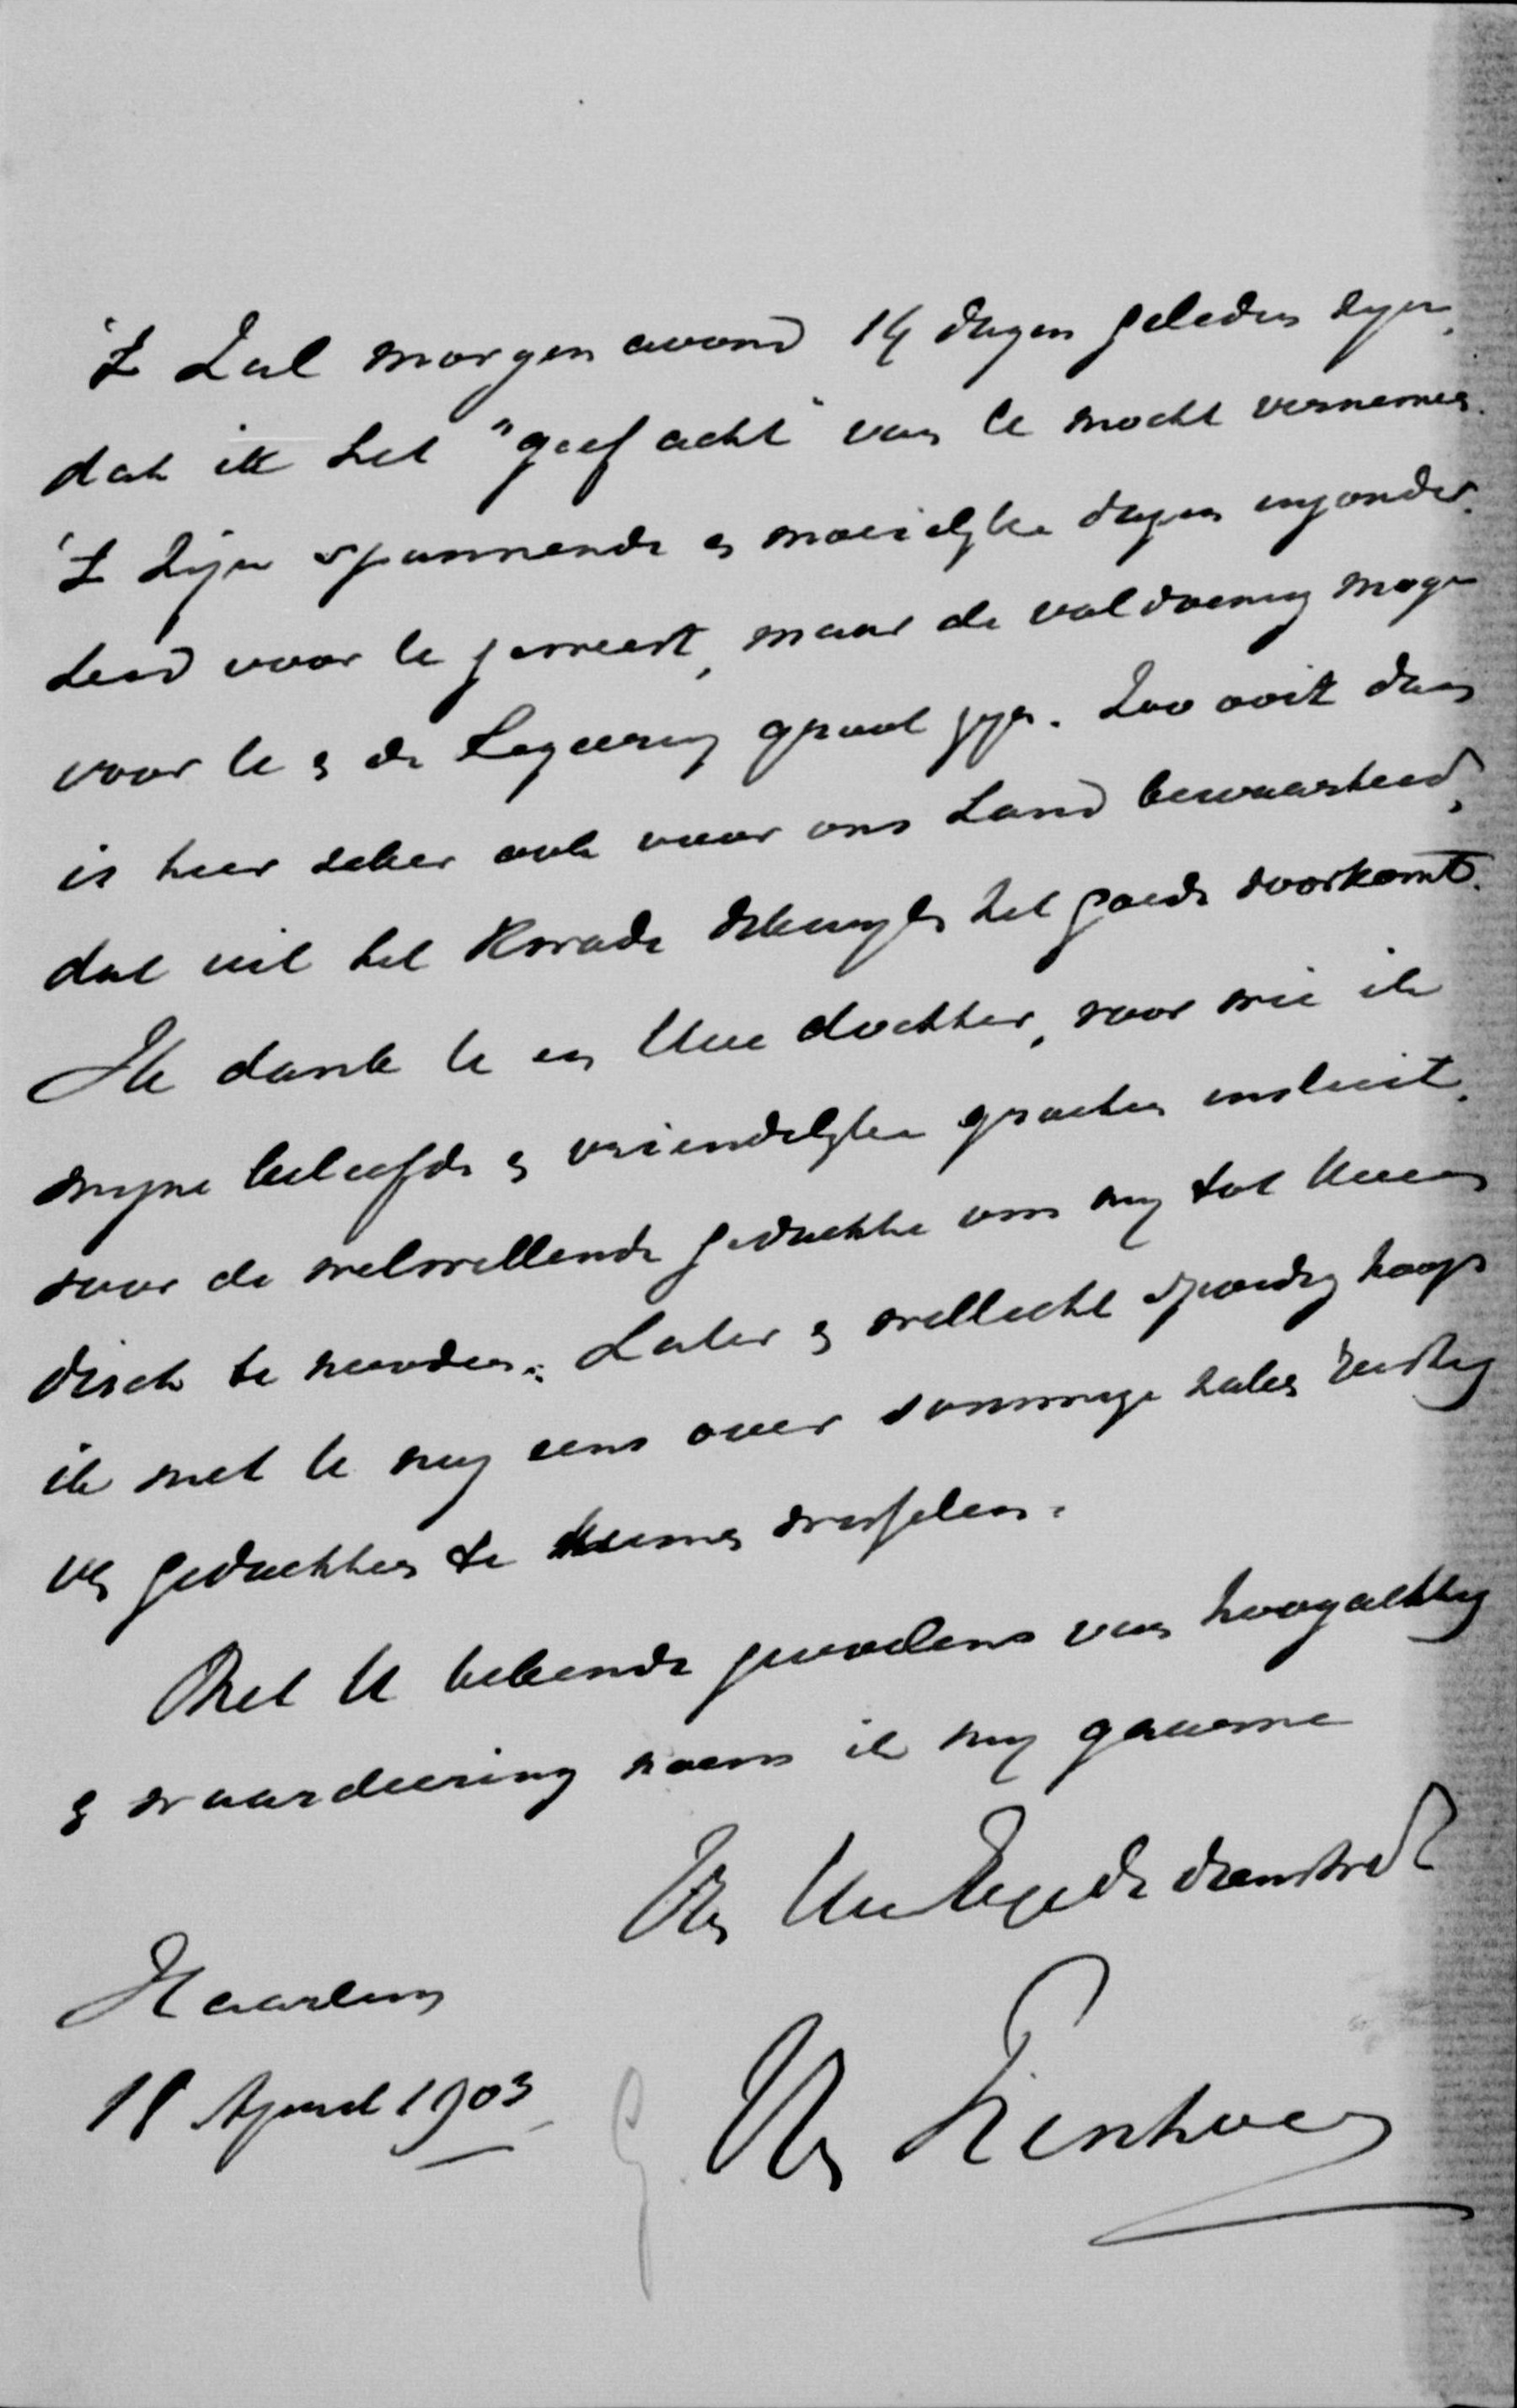 't Zal morgen avond 14 dagen geleden zijn,
dat ik het "geef acht" van U mocht vernemen.
't Zijn spannende en moeielijke dagen inzonder-
heid voor U geweest, maar de voldoening moge
voor U en de Regeering groot zijn. Zoo ooit dan
is hier zeker ook voor ons Land bewaarheid,
dat uit het kwade dikwijls het goede voortkomt.
Ik dank U en Uwe dochter, voor wie ik
mijne beleefde en vriendelijke groeten insluit,
voor de welwillende gedachte om mij tot Uwen
disch te nooden. Later en wellicht spoedig hoop
ik met U nog eens over sommige zaken rustig
van gedachten te kunnen wisselen.
Met U bekende gevoelens van hoogachting
en waardeering noem ik mij gaarne
Uw dienstw
Haarlem
18 April 1903